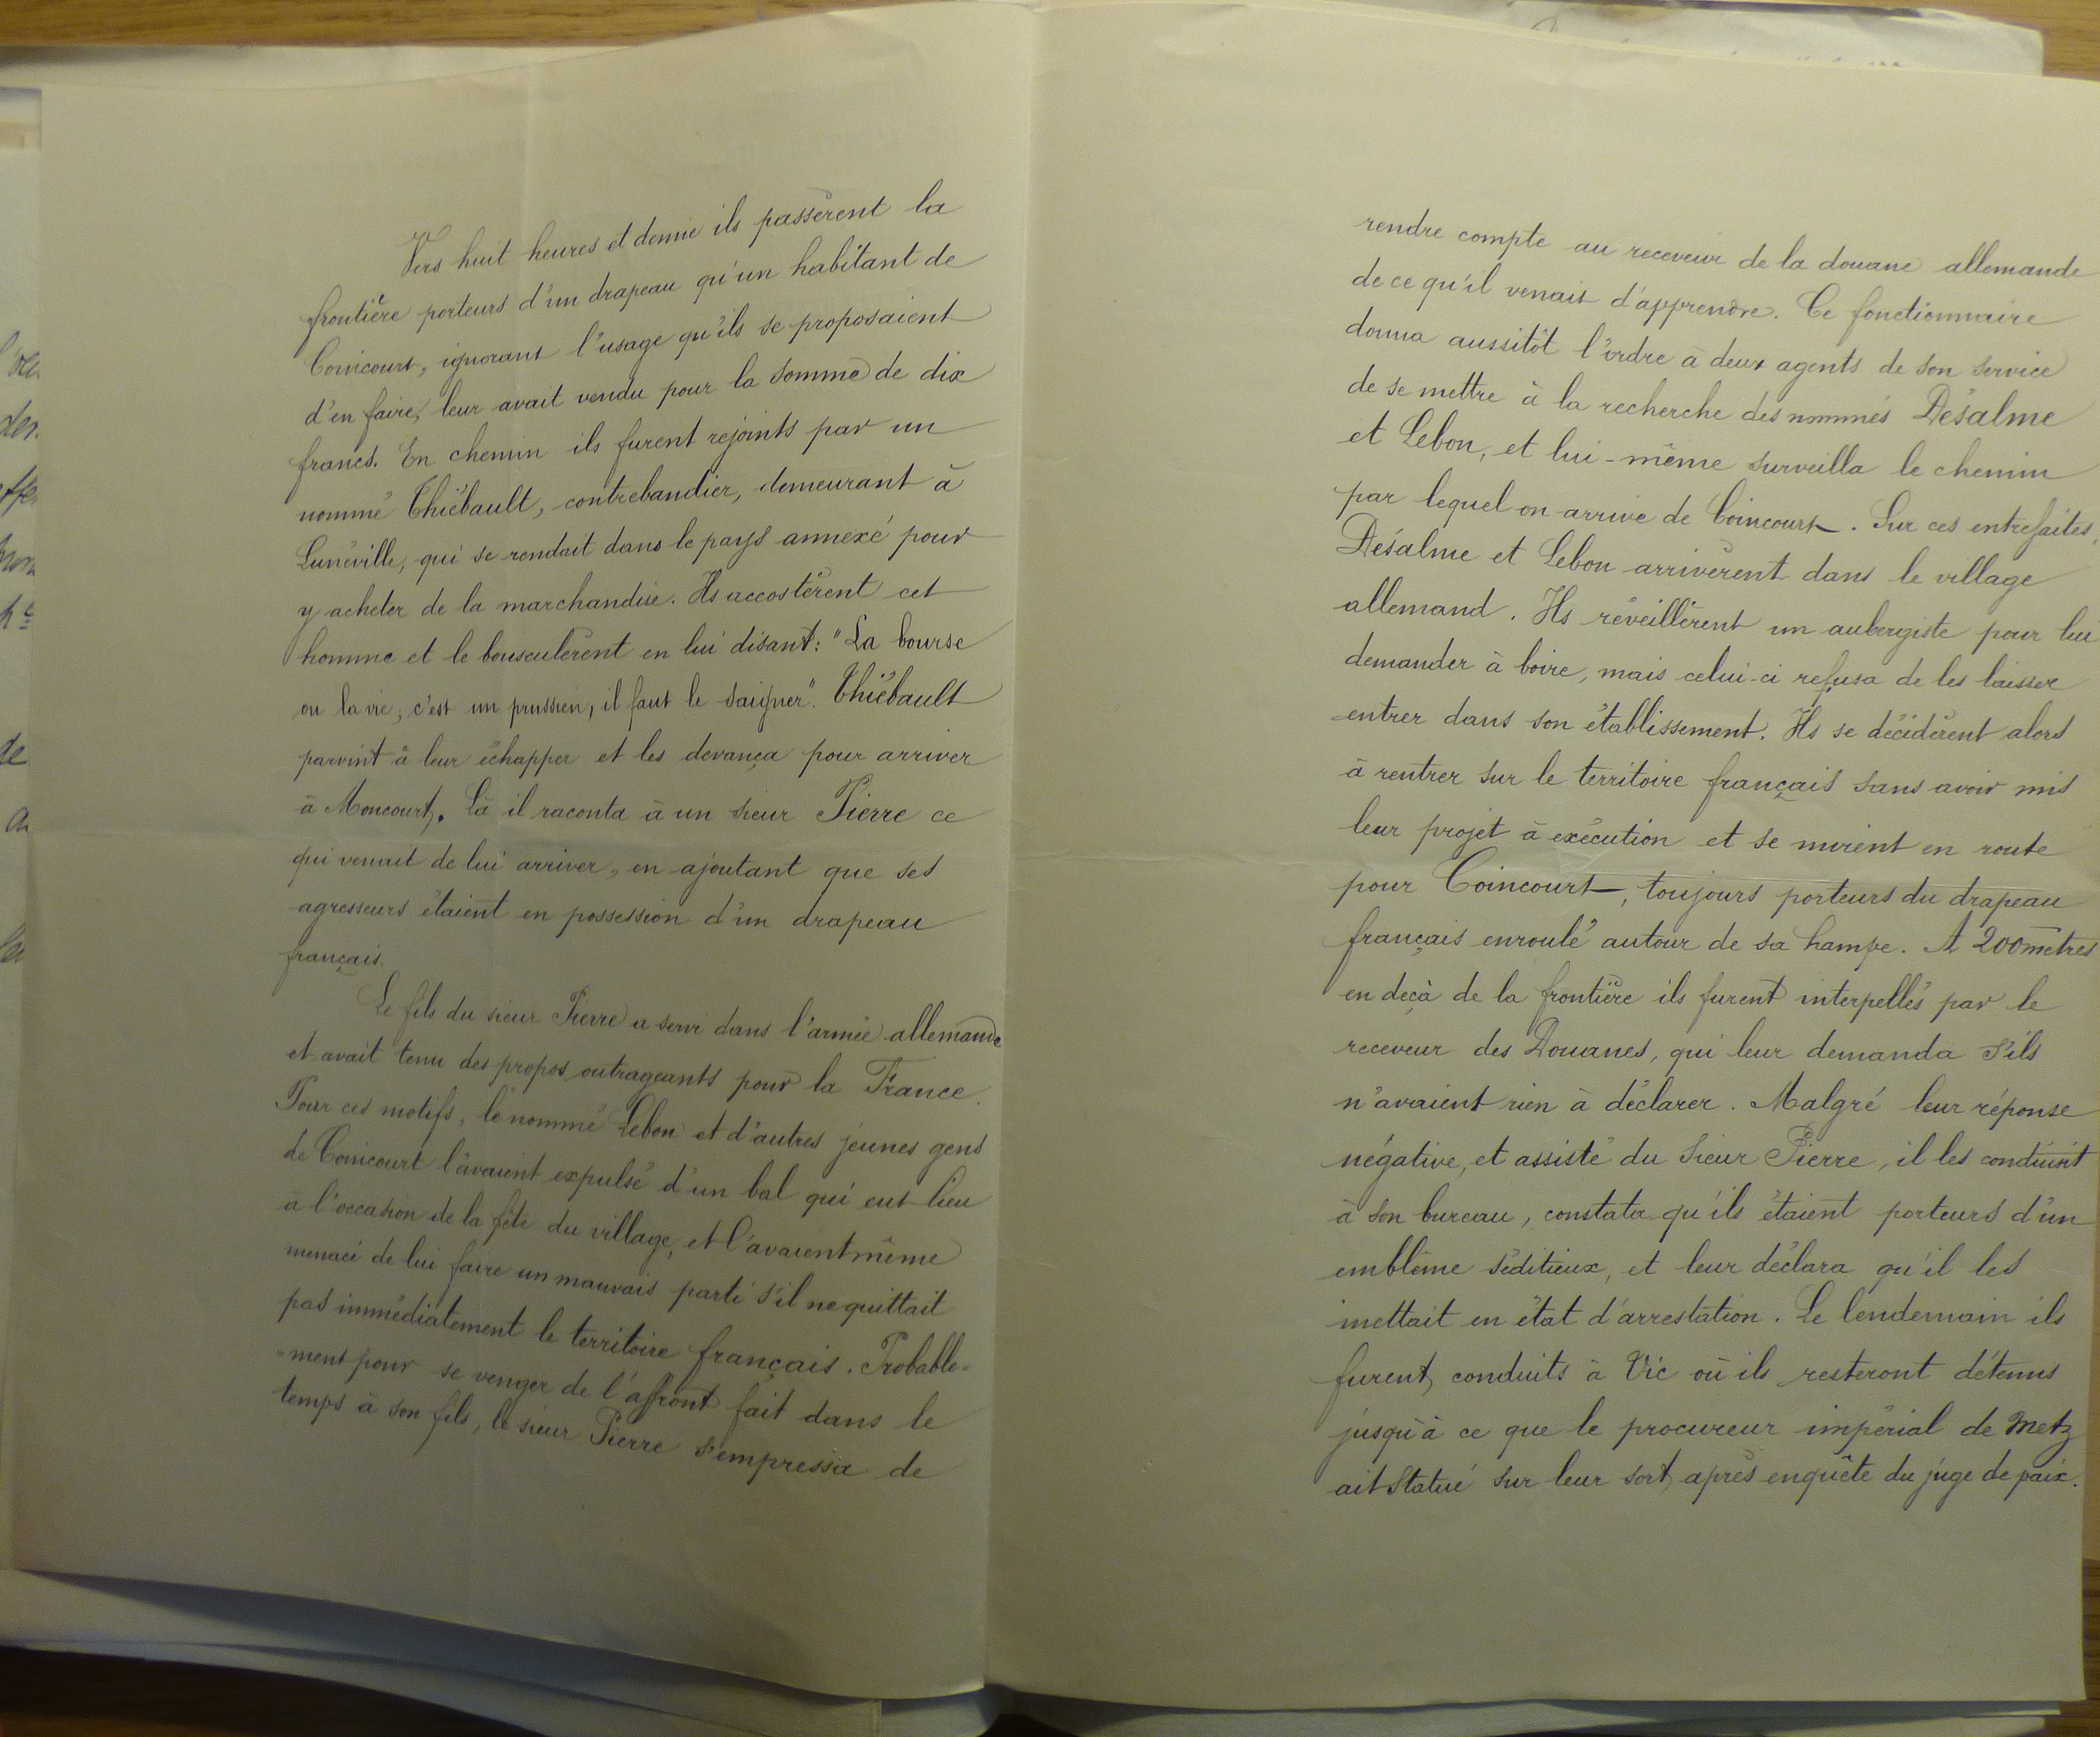 Vers huit heures et demie ils passèrent la
frontière porteurs d'un drapeau qu'un habitant de
Coincourt, ignorant l'usage qu'ils se proposaient
d'en faire, leur avait vendu pour la somme de dix
francs. En chemin ils furent rejoints par un
nommé Thiébault, contrebandier, demeurant à
Lunéville, qui se rendait dans le pays annexé pour
y acheter de la marchandise. Ils accostèrent cet
homme et le bousculèrent en lui disant: "La bourse
ou la vie, c'est un prussien, il faut le saigner". Thiébault
parvint à leur échapper et les devança pour arriver
à Moncourt. Là il raconta à un sieur Pierre ce
qui venait de lui arriver, en ajoutant que ses
agresseurs étaient en possession d'un drapeau
français.
Le fils du sieur Pierre a servi dans l'armée allemande
et avait tenu des propos outrageants pour la France.
Pour ces motifs, le nommé Lebon et d'autres jeunes gens
de Coincourt l'avaient expulsé d'un bal qui eut lieu
à l'occasion de la fête du village, et l'avaient même
menacé de lui faire un mauvais parti s'il ne quittait
pas immédiatement le territoire français. Probable-
-ment pour se venger de l'affront fait dans le
temps à son fils, le sieur Pierre s'empressa de
rendre compte au receveur de la douane allemande
de ce qu'il venait d'apprendre. Ce fonctionnaire
donna aussitôt l'ordre à deux agents de son service
de se mettre à la recherche des nommés Désalme
et Lebon, et lui-même surveilla le chemin
par lequel on arrive de Coincourt. Sur ces entrefaites,
Désalme et Lebon arrivèrent dans le village
allemand. Ils réveillèrent un aubergiste pour lui
demander à boire, mais celui-ci refusa de les laisser
entrer dans son établissement. Ils se décidèrent alors
à rentrer sur le territoire français sans avoir mis
leur projet à exécution et se mirent en route
pour Coincourt, toujours porteurs du drapeau
français enroulé autour de sa hampe. A 200 mètres
en deçà de la frontière ils furent interpellés par le
receveur des Douanes, qui leur demanda s'ils
n'avaient rien à déclarer. Malgré leur réponse
négative, et assisté du sieur Pierre, il les conduisit
à son bureau, constata qu'ils étaient porteurs d'un
emblême séditieux, et leur déclara qu'il les
mettait en état d'arrestation. Le lendemain ils
furent conduits à Vic où ils resteront détenus
jusqu'à ce que le procureur impérial de Metz
ait statué sur leur sort, après enquête du juge de paix.